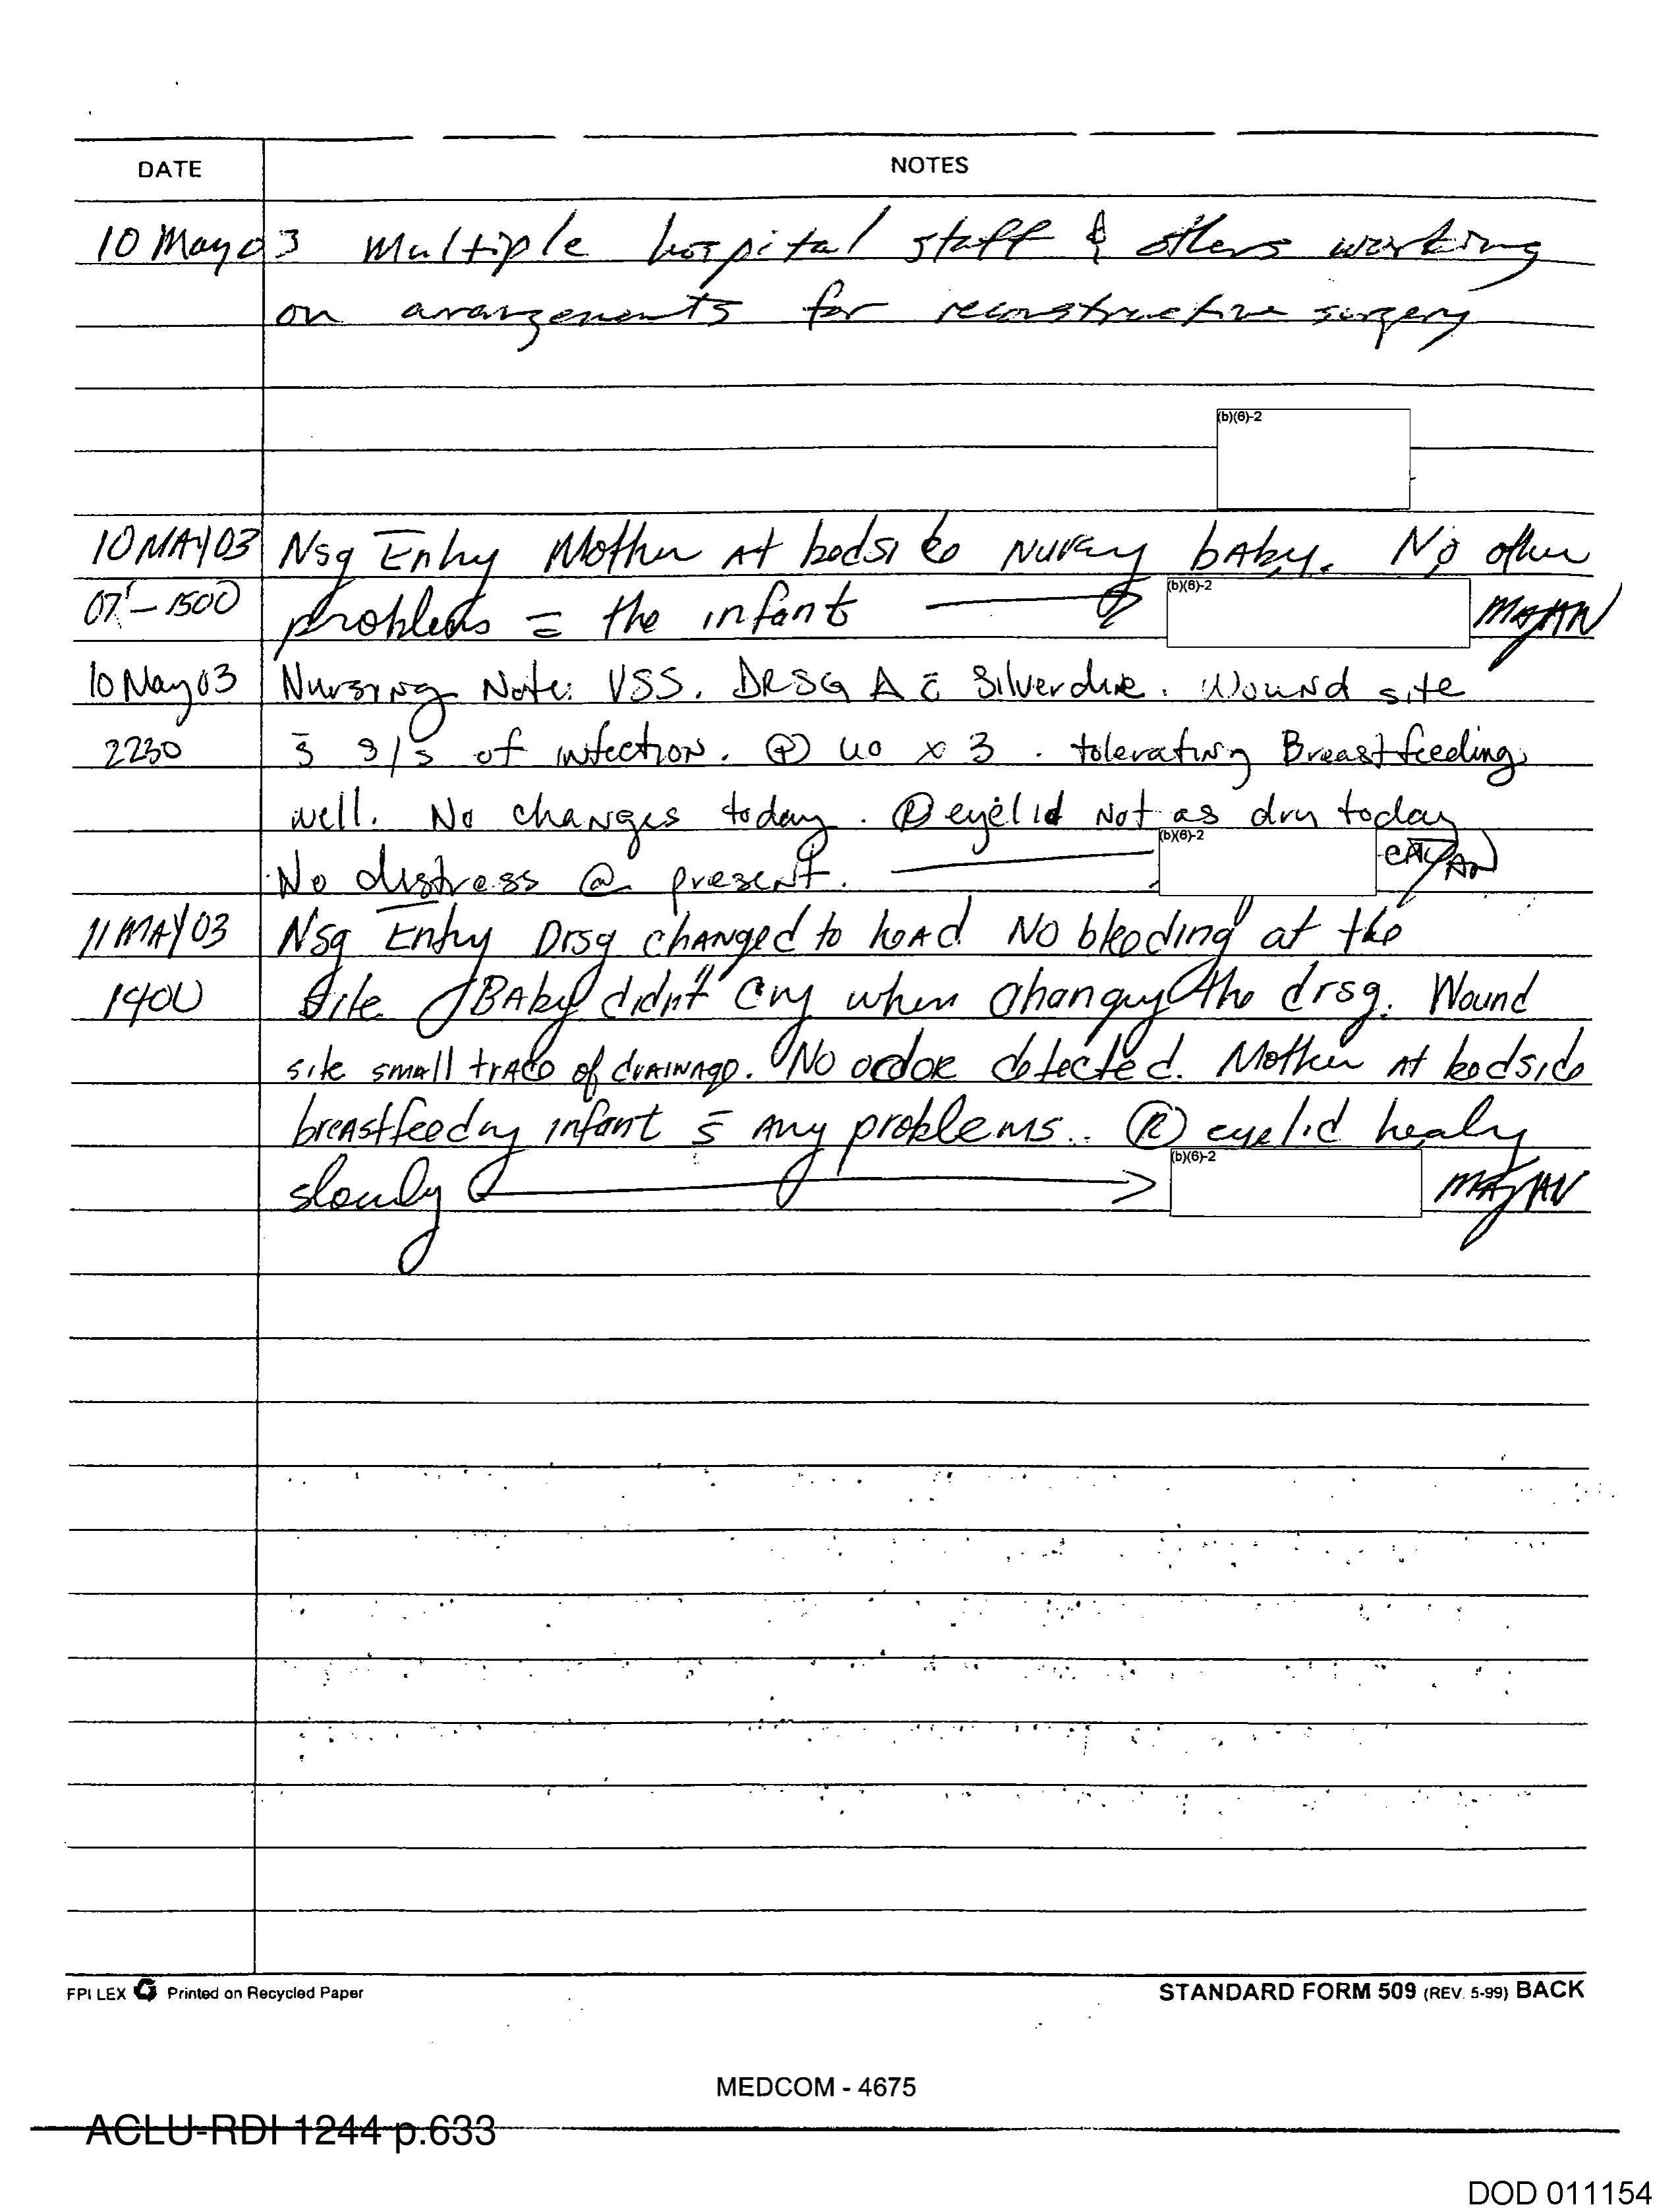 DATE NOTES
10 May 03 Multiple hospital staff & others working
on arangements for reconstructive surgery
(b)(6)-2
10 MAY 03 Nsg Entry Mother At bedside Nursing bAby. No other
07 - 1500 problems c̄ the infant (b)(6)-2 MAJ AN
10 May 03 Nursing Note: VSS. DRSG Δ c̄ Silverdine. Wound site
2230 s̄ s/s of infection. (+) uo x 3. tolerating Breastfeeding
well. No changes today. (R) eyelid Not as dry today
No distress @ present. (b)(6)-2 CPT AN
11 MAY 03 Nsg Entry Drsg changed to head No bleeding at the
1400 site Baby didn't cry when changing the drsg. Wound
site small trace of drainage. No odor detected. Mother At bedside
breastfeeding infant s̄ Any problems.. (R) eyelid healing
slowly (b)(6)-2 MAJ AN
FPI LEX Printed on Recycled Paper STANDARD FORM 509 (REV. 5-99) BACK
MEDCOM - 4675
ACLU-RDI 1244 p.633
DOD 011154